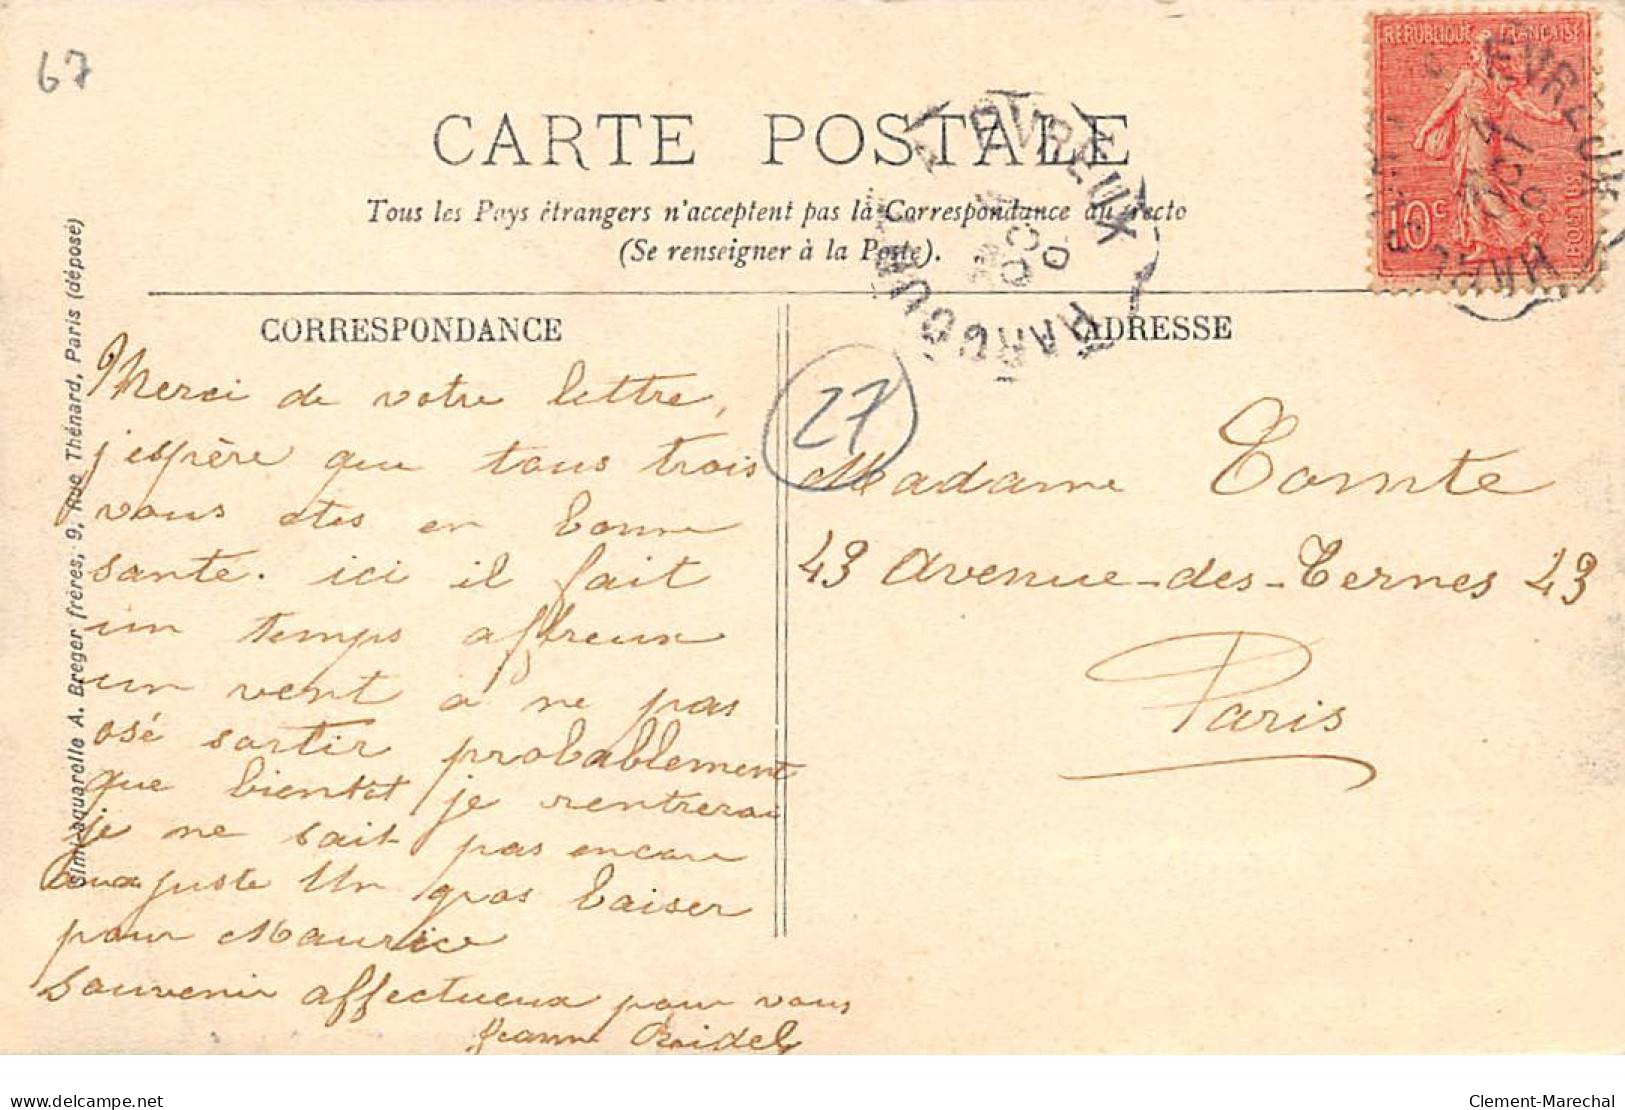 67
CARTE POSTALE
Tous les Pays étrangers n'acceptent pas la Correspondance au recto
(Se renseigner à la Poste).
REPUBLIQUE FRANÇAISE
10c
POSTES
EVREUX
EVREUX
CORRESPONDANCE
ADRESSE
27
Simili-aquarelle A. Breger frères, 9, Rue Thénard, Paris (déposé)
Merci de votre lettre,
j'espère que tous trois
vous etes en bonne
sante. ici il fait
un temps affreux
un vent a ne pas
osé sortir probablement
que bientot je rentrerai
je ne sait pas encore
juste Un gros baiser
pour Maurice
Souvenir affectueux pour vous
Jeanne Roidel
Madame Comte
43 Avenue-des-Ternes 43
Paris
delcampe.net
Clement-Marechal